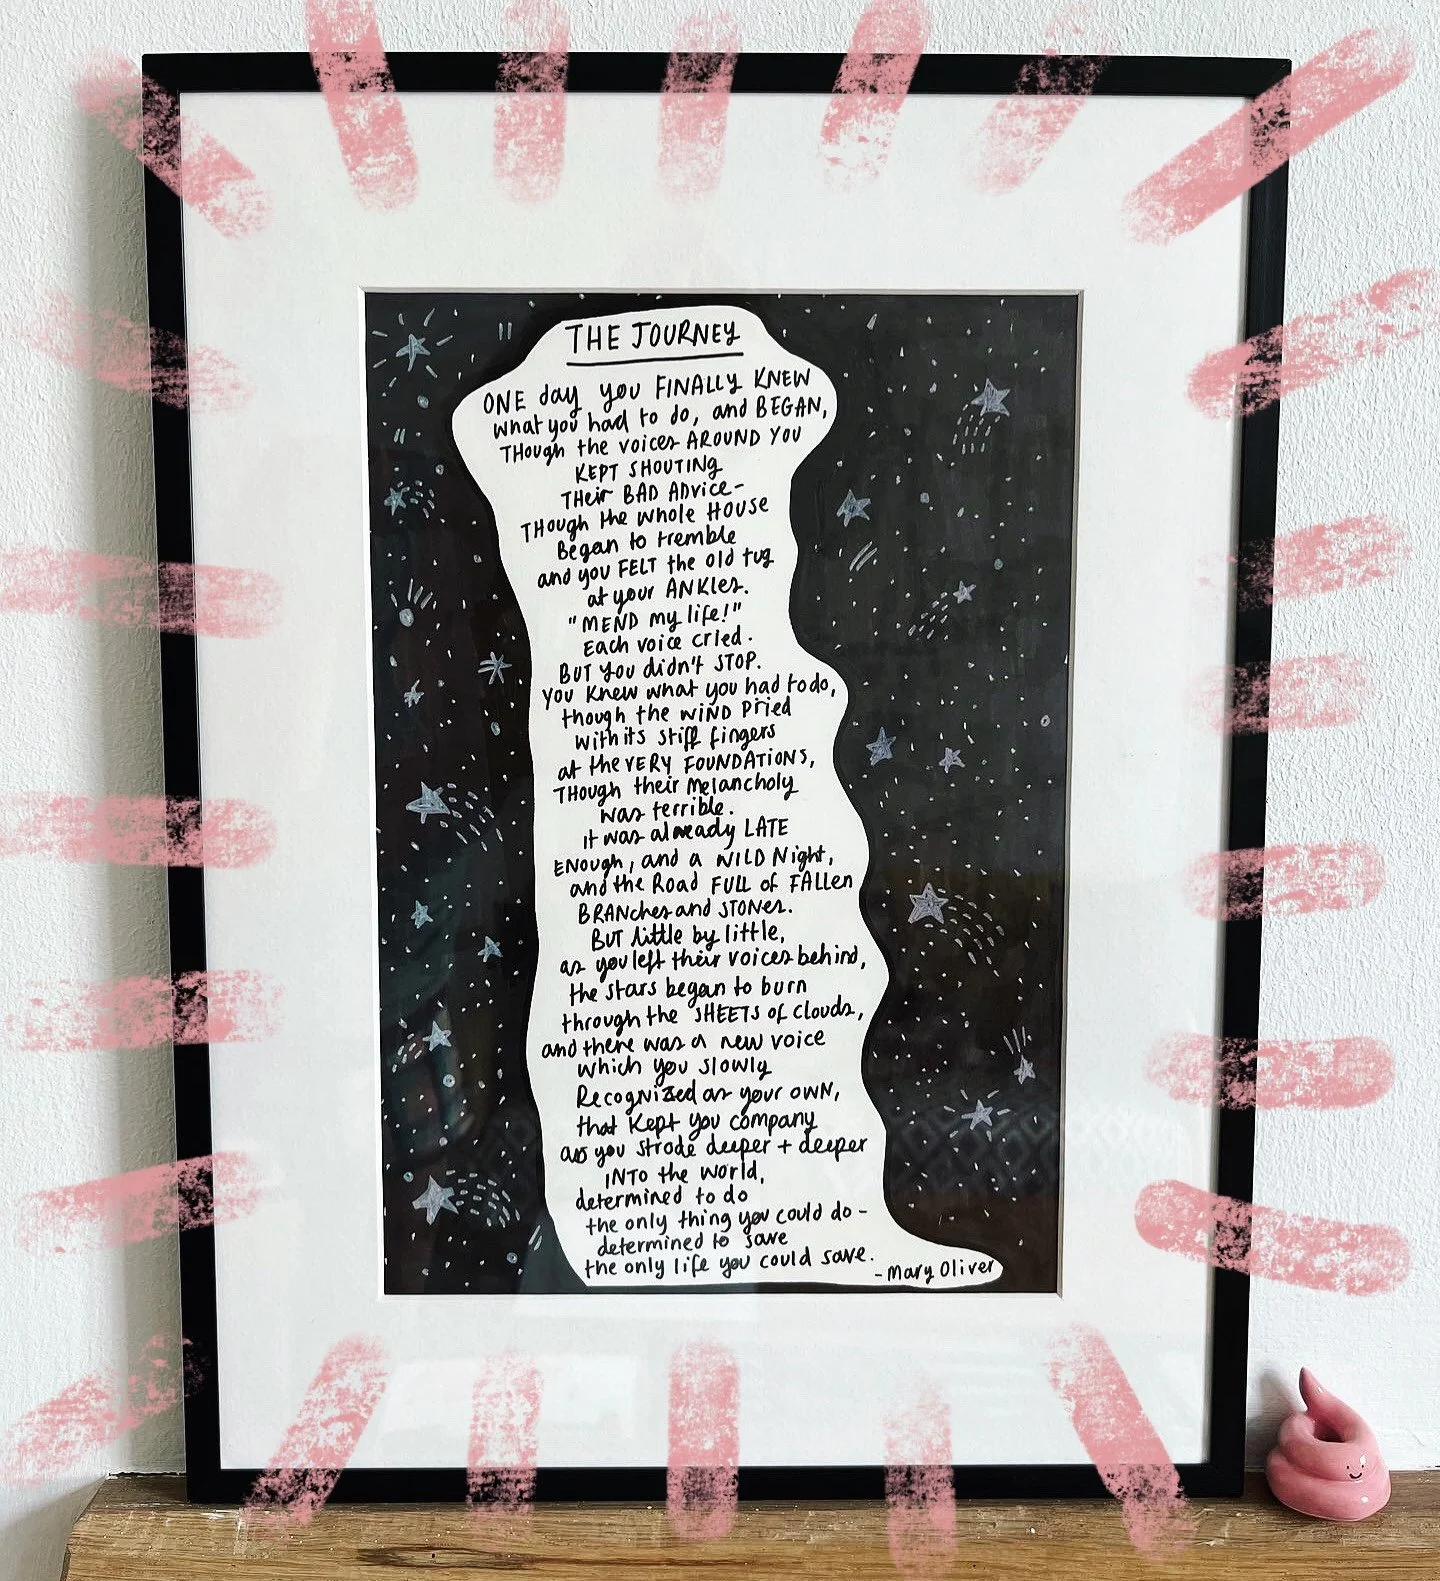 THE JOURNEY
ONE day you FINALLY KNEW
what you had to do, and BEGAN,
THough the voices AROUND YOU
KEPT SHOUTING
THeir BAD ADvice-
THough the whole HOUSE
Began to tremble
and you FELT the old tug
at your ANKLes.
"MEND my life!"
Each voice cried.
BUT YOU didn't STOP.
YOU KNEW what you had to do,
though the WIND Pried
with its stiff fingers
at the VERY FOUNDATIONS,
THough their Melancholy
was terrible.
it was already LATE
ENOUGH, and a WILD Night,
and the Road FULL of FALLen
BRANches and STONes.
BUT little by little,
as you left their voices behind,
the stars began to burn
through the SHEETS of clouds,
and there was a new voice
which you slowly
Recognized as your OWN,
that Kept you company
as you strode deeper + deeper
INTO the world,
determined to do
the only thing you could do-
determined to save
the only life you could save.
-Mary Oliver